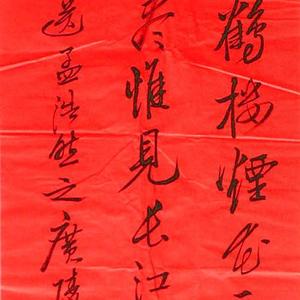 鶴楼煙花
尽惟見长江
送孟浩然之廣陵